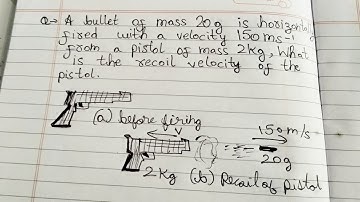 Q→ A bullet of mass 20g is horizontal
fired with a velocity 150 ms⁻¹
from a pistol of mass 2kg, What
is the recoil velocity of the
pistol.
(a) before firing
150 m/s
20g
2 Kg (b) Recoil of pistol